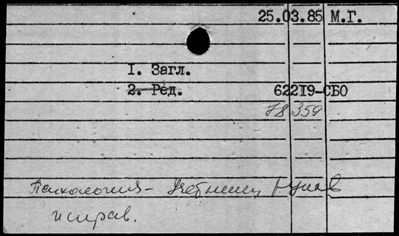 25.03.85 М.Г.
I. Загл.
2. Ред.
622I9-СБО
78 359
Психология -
исправ.